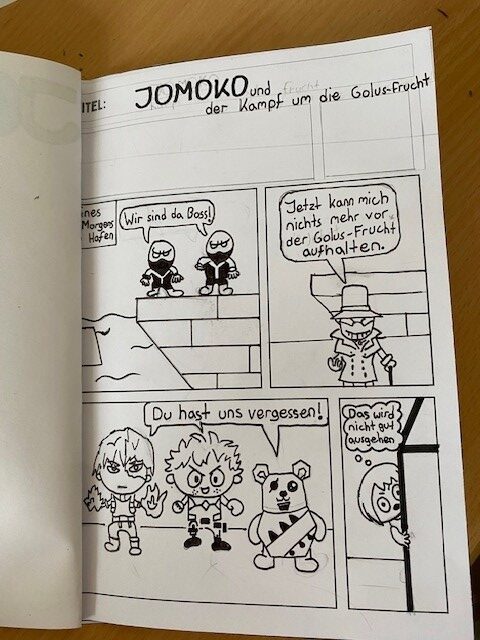 ITEL: JOMOKO und
der Kampf um die Golus-Frucht
ines
Morgens
Hafen
Wir sind da Boss!
Jetzt kann mich
nichts mehr vor
der Golus-Frucht
aufhalten.
Du hast uns vergessen!
Das wird
nicht gut
ausgehen